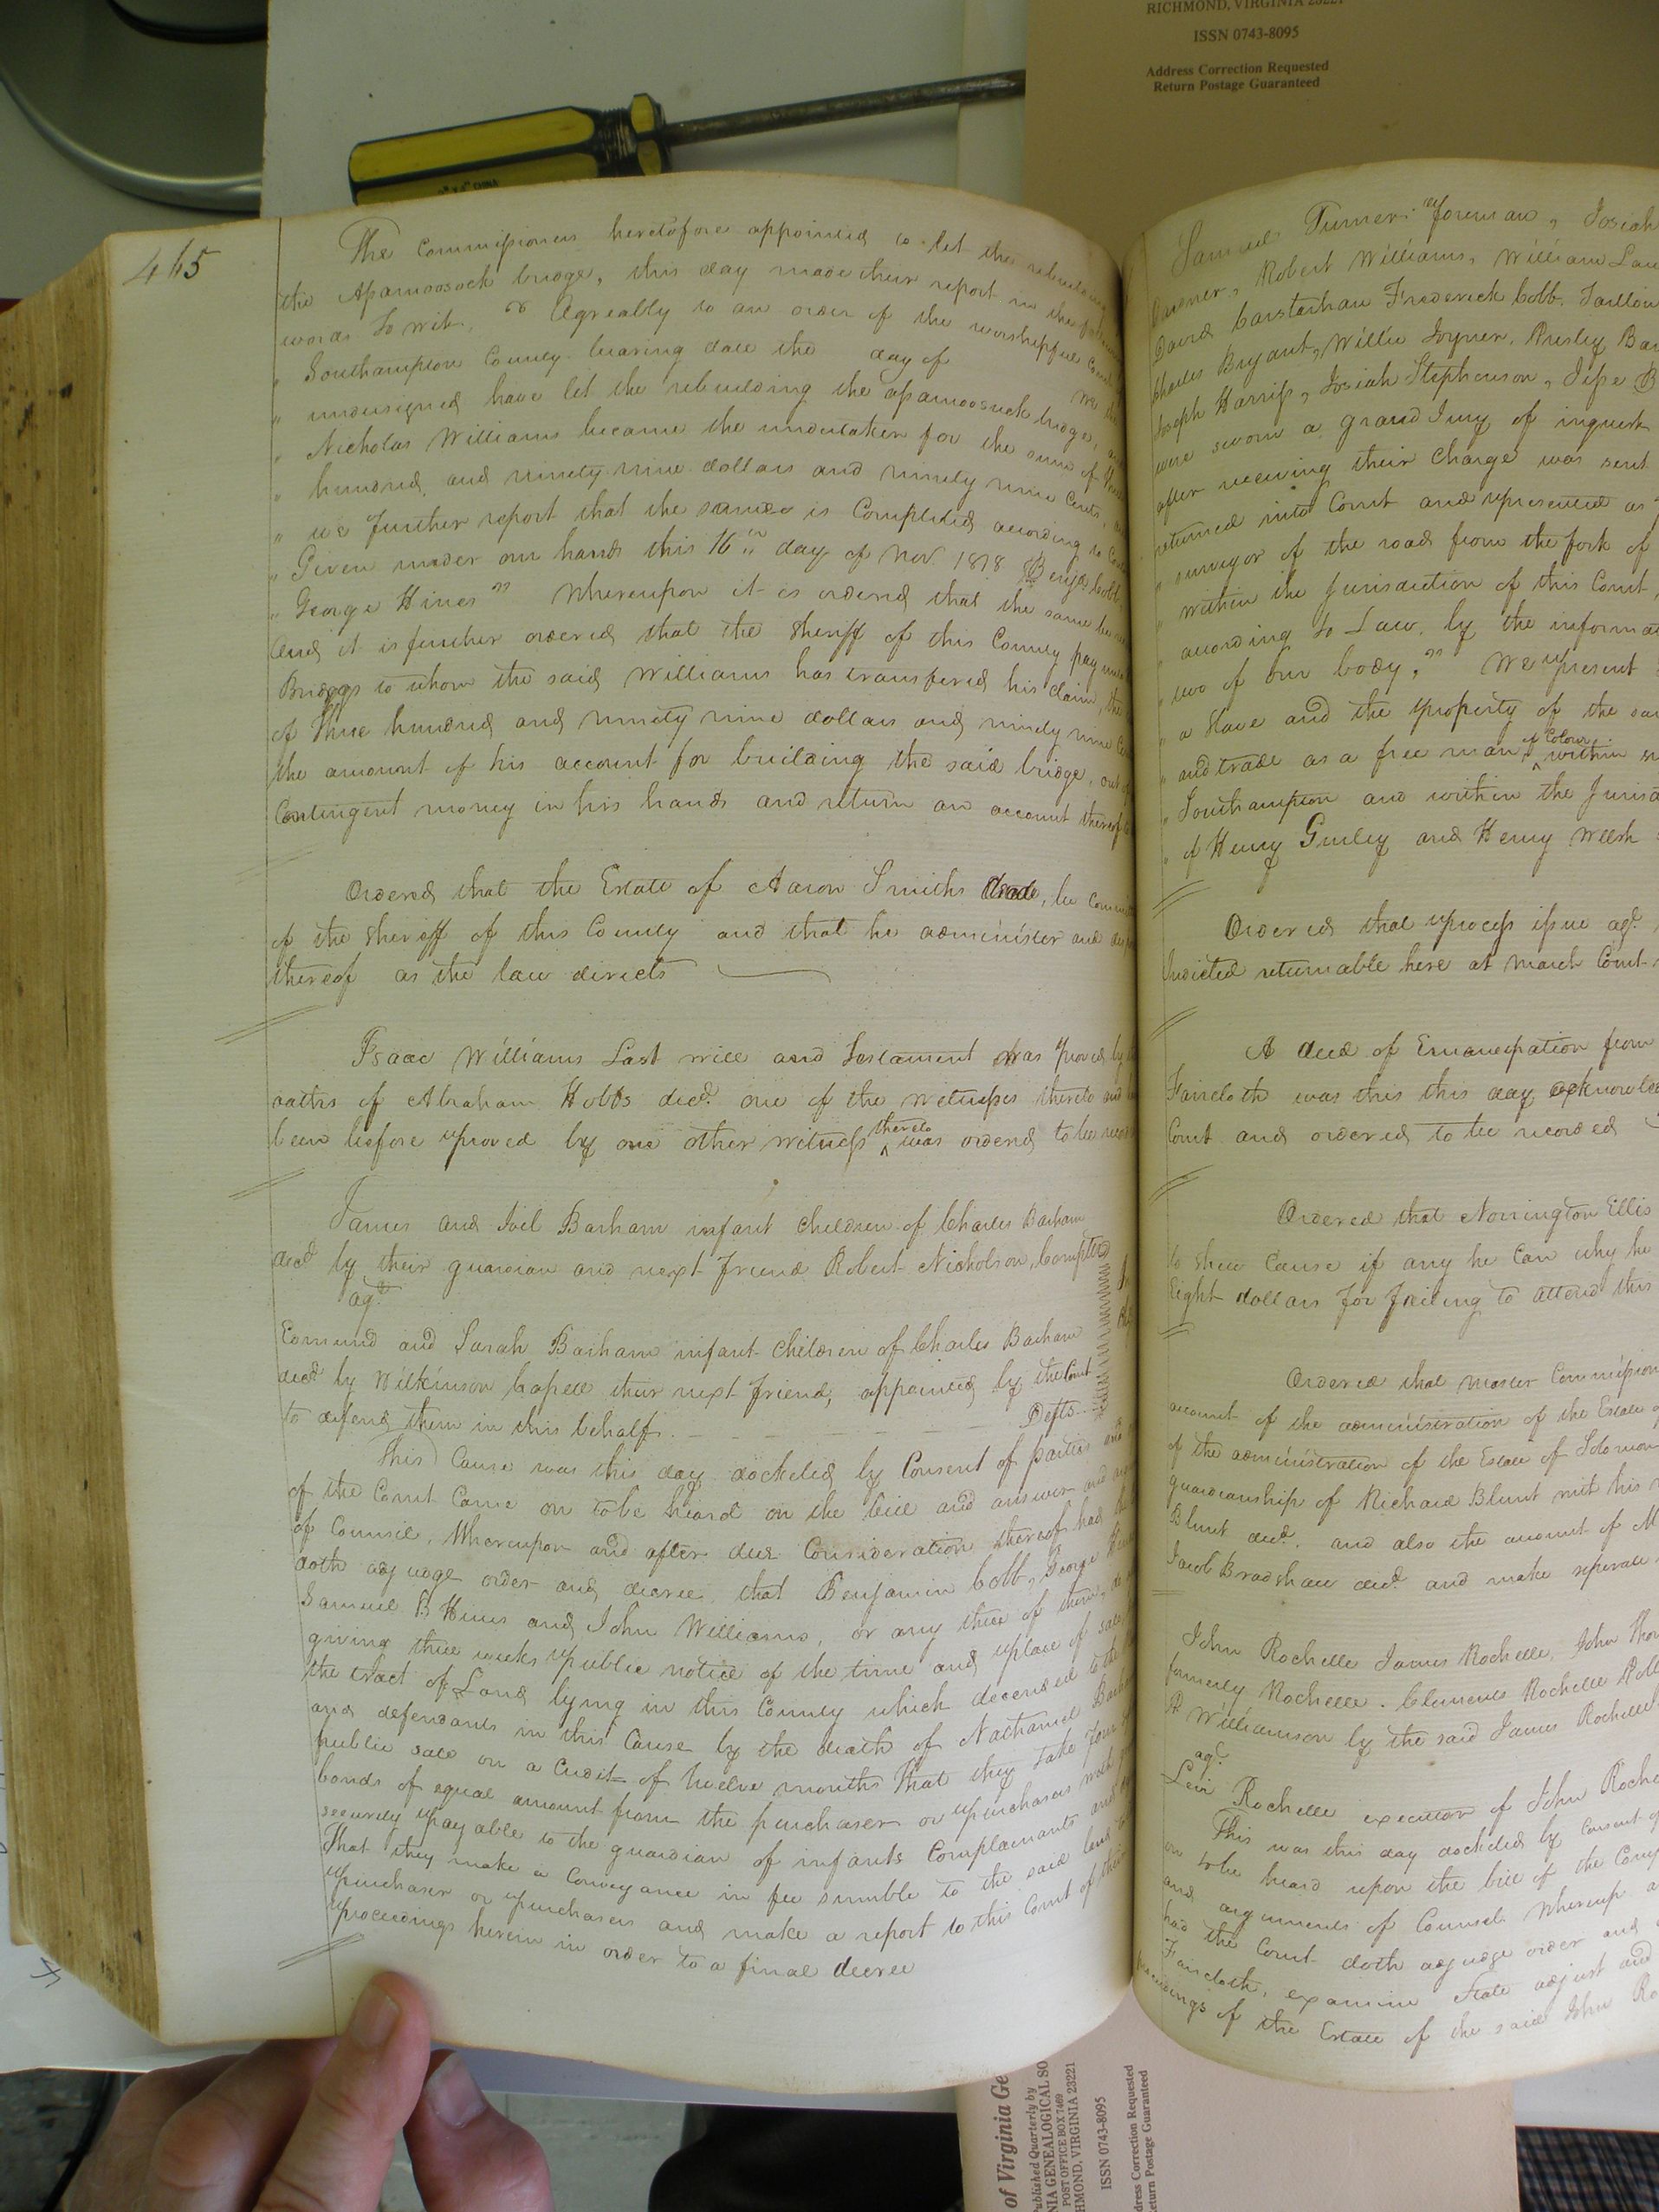 RICHMOND, VIRGINIA 23221
ISSN 0743-8095
Address Correction Requested
Return Postage Guaranteed
CHINA
465
The Commissioners heretofore appointed to let the rebuilding
the Apamoosock bridge, this day made their report in the
words to wit. " Agreeably to an order of the worshipful
" Southampton County bearing date the day of We the
" undersigned have let the rebuilding the apamoosuck bridge,
" Nicholas Williams became the undertaker for the sum of
" hundred, and ninety nine dollars and ninety nine Cents,
" we further report that the same is Completed according to
" Given under our hands this 16th day of Nov. 1818 Benja. Cobb
" George Hines " Whereupon it is ordered that the same be
And it is further ordered that the Sheriff of this County pay
Briggs to whom the said Williams has transfered his claim, the
of Three hundred and ninety nine dollars and ninety nine
the amount of his account for building the said bridge, out of
Contingent money in his hands and return an account thereof
Ordered that the Estate of Aaron Smith decd, be
of the Sheriff of this County and that he administer and
thereof as the law directs
Isaac Williams Last will and Testament was proved by
oaths of Abraham Hobbs decd. one of the Witnesses thereto and
been before proved by one other witness thereto was ordered to be
James and Joel Barham infant children of Charles Barham
decd by their guardian and next friend Robert Nicholson, Complts
agt.
Edmund and Sarah Barham infant children of Charles Barham
decd by Wilkinson Capell their next friend, appointed by the Court
to defend them in this behalf. Defts.
This Cause was this day docketed by Consent of parties and
of the Court Came on to be heard on the bill and answer and
of Council, Whereupon and after due Consideration thereof had the
doth adjudge order and decree that Benjamin Cobb, George
Samuel B Hines and John Williams, or any three of them,
giving three weeks public notice of the time and place of sale
the tract of Land lying in this County which decended to the
and defendants in this Cause by the death of Nathaniel
public sale on a Credit of twelve months That they take four
bonds of equal amount from the purchaser or purchasers with
security payable to the guardian of infants Complainants and
That they make a Conveyance in fee simble to the said land
purchaser or purchasers and make a report to this Court of their
proceedings herein in order to a final decree
Samuel Turner foreman, Josiah
Robert Williams, William
David Carstarphan Frederick Cobb.
Charles Bryant, Willie Joyner, Presley
Joseph Harriss, Josiah Stephenson, Jesse
were sworn a grand Jury of inquest
after receiving their Charge was sent
returned into Court and presented as
" surveyor of the road from the fork of
" within the Jurisdiction of this Court,
" according to Law, by the
" two of our body, " We present
" a slave and the property of the
" and trade as a free man of Colour within
" Southampton and within the
" of Henry Gurley and Henry
Ordered that process issue agt.
Indicted returnable here at march Court
A deed of Emancipation from
Faircloth was this this day
Court and ordered to be recorded
Ordered that Norrington Ellis
to shew Cause if any he Can why he
Eight dollars for failing to attend this
Ordered that master
account of the administration of the Estate
of the administration of the Estate of Solomon
guardianship of Richard Blunt with his
Blunt decd. and also the amount of
Jacob Bradshaw decd. and make seperate
John Rochelle James Rochelle, John
formerly Rochelle. Clements Rochelle
R Williamson by the said James Rochelle
agt.
Levi Rochelle executor of John
This was this day docketed by Consent
on to be heard upon the bill of the
and arguments of Counsel Whereup
had the Court doth adjudge order and
Faircloth, examine State adjust and
of the Estate of the said John
of Virginia
Published Quarterly by
POST OFFICE BOX 7469
ISSN 0743-8095